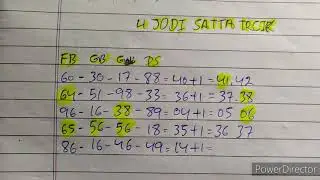 4 JODI SATTA TRICK
FB GB GL DS
60-30-17-88=40+1=41.42
64-51-98-33=36+1=37.38
96-16-38-89=04+1=05 06
65-56-56-18=35+1=36 37
86-16-46-49=14+1=
PowerDirector